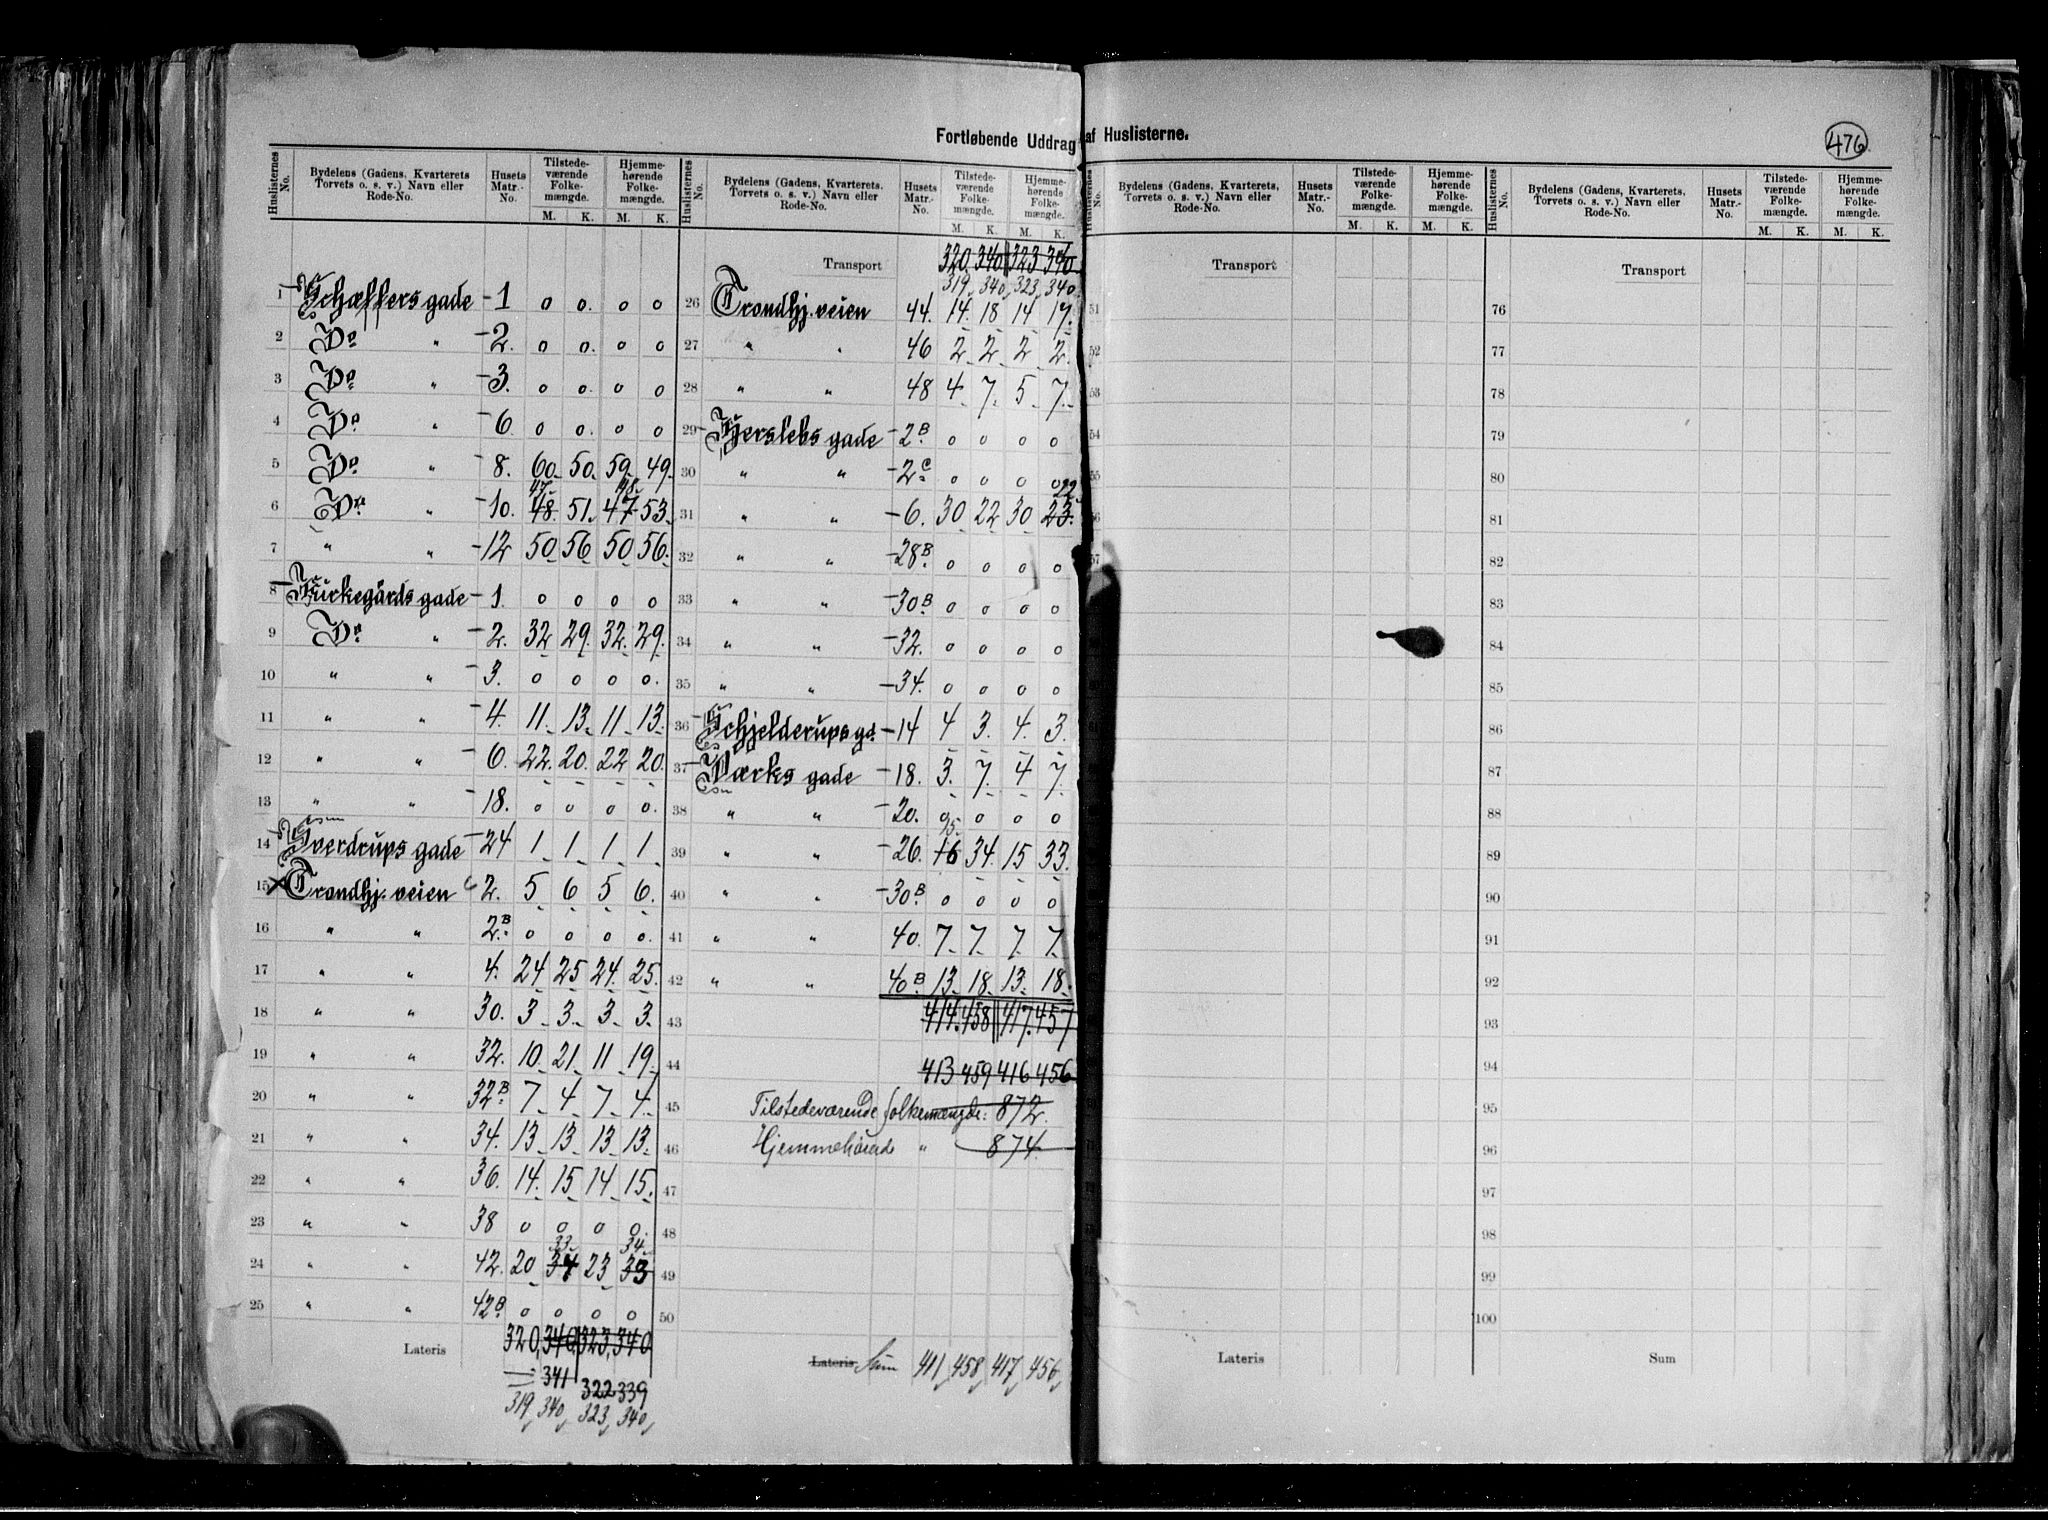 Fortløbende Uddrag af Huslisterne.
476
Huslisternes No. | Bydelens (Gadens, Kvarterets Torvets o. s. v.) Navn eller Rode-No. | Husets Matr.-No. | Tilstedeværende Folkemængde. M. K. | Hjemmehørende Folkemængde. M. K.
1 Schæffers gade - 1 0 0 0 0
2 Do " - 2. 0 0 0 0
3 Do " - 3. 0 0 0 0
4 Do " - 6. 0 0 0 0
5 Do " - 8. 60 50 59 49
47 48
6 Do " - 10. 48 51 47 53
7 " " - 12 50 56 50 56
8 Kirkegårds gade - 1. 0 0 0 0
9 Do " - 2. 32 29 32 29
10 " " - 3. 0 0 0 0
11 " " - 4. 11 13 11 13
12 " " - 6. 22 20 22 20
13 " " - 18. 0 0 0 0
14 Sverdrups gade - 24 1 1 1 1
15 Trondhj. veien 2. 5 6 5 6
16 " " 2B 0 0 0 0
17 " " 4. 24 25 24 25
18 " " 30. 3 3 3 3
19 " " 32. 10 21 11 19
20 " " 32B 7 4 7 4
21 " " 34. 13 13 13 13
22 " " 36. 14 15 14 15
23 " " 38 0 0 0 0
33 34
24 " " 42. 20 34 23 33
25 " " 42B 0 0 0 0
Lateris 320 340 323 340
341 322 339
319 340 323 340
Huslisternes No. | Bydelens (Gadens, Kvarterets, Torvets o. s. v.) Navn eller Rode-No. | Husets Matr.-No. | Tilstedeværende Folkemængde. M. K. | Hjemmehørende Folkemængde. M. K.
Transport 320 340 323 340
319 340 323 340
26 Trondhj. veien 44. 14 18 14 17
27 " " 46 2 2 2 2
28 " " 48 4 7 5 7
29 Hjerslebs gade - 2B 0 0 0 0
30 " " - 2C 0 0 0 0
22
31 " " - 6. 30 22 30 23
32 " " - 28B 0 0 0 0
33 " " - 30B 0 0 0 0
34 " " - 32. 0 0 0 0
35 " " - 34. 0 0 0 0
36 Schjelderups gd. - 14 4 3 4 3
37 Værks gade - 18. 3 7 4 7
38 " " - 20. 0 0 0 0
15
39 " " - 26. 16 34 15 33
40 " " - 30B 0 0 0 0
41 " " 40. 7 7 7 7
42 " " 40B 13 18 13 18
43 414 458 417 457
44 413 459 416 456
45 Tilstedeværende folkemængde: 872.
46 Hjemmehørende " 874.
47
48
49
50
Lateris Sum 411 458 417 456
Huslisternes No. | Bydelens (Gadens, Kvarterets, Torvets o. s. v.) Navn eller Rode-No. | Husets Matr.-No. | Tilstedeværende Folkemængde. M. K. | Hjemmehørende Folkemængde. M. K.
Transport
51
52
53
54
55
56
57
Lateris
Huslisternes No. | Bydelens (Gadens, Kvarterets, Torvets o. s. v.) Navn eller Rode-No. | Husets Matr.-No. | Tilstedeværende Folkemængde. M. K. | Hjemmehørende Folkemængde. M. K.
Transport
76
77
78
79
80
81
82
83
84
85
86
87
88
89
90
91
92
93
94
95
96
97
98
99
100
Sum